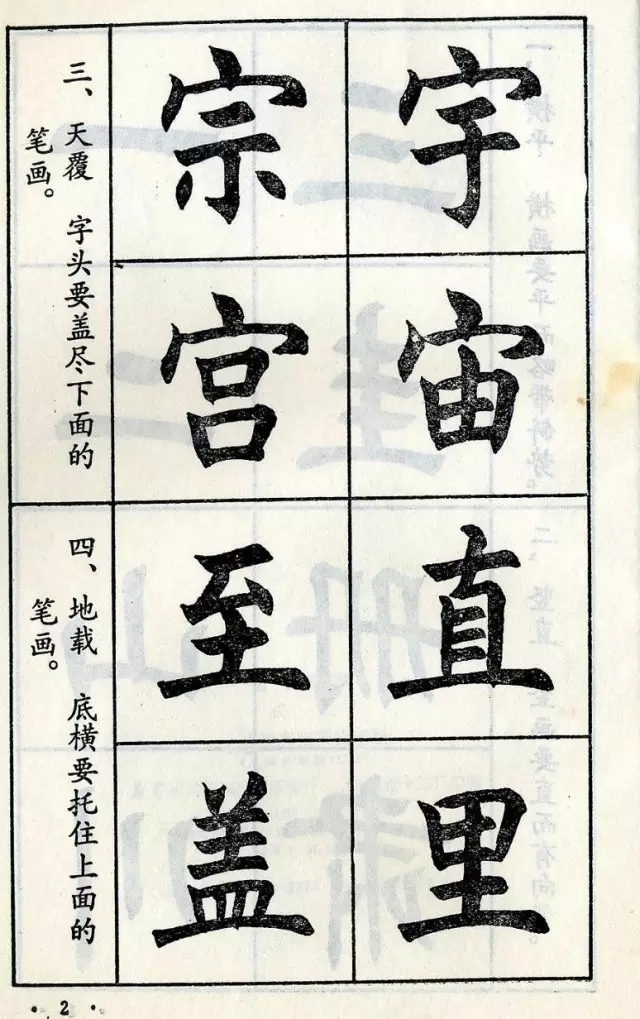 宇宙
宗宫
三、天覆 字头要盖尽下面的
笔画。
直里
至盖
四、地载 底横要托住上面的
笔画。
· 2 ·